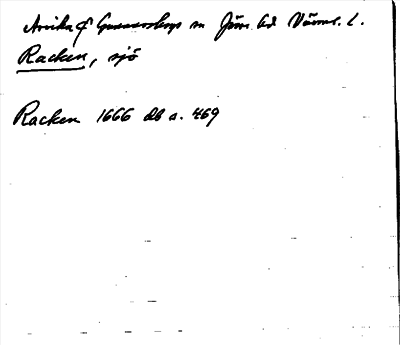 Arvika o Gunnarskogs sn Jösse hd Värml. l.
Racken, sjö
Racken 1666 db s. 469